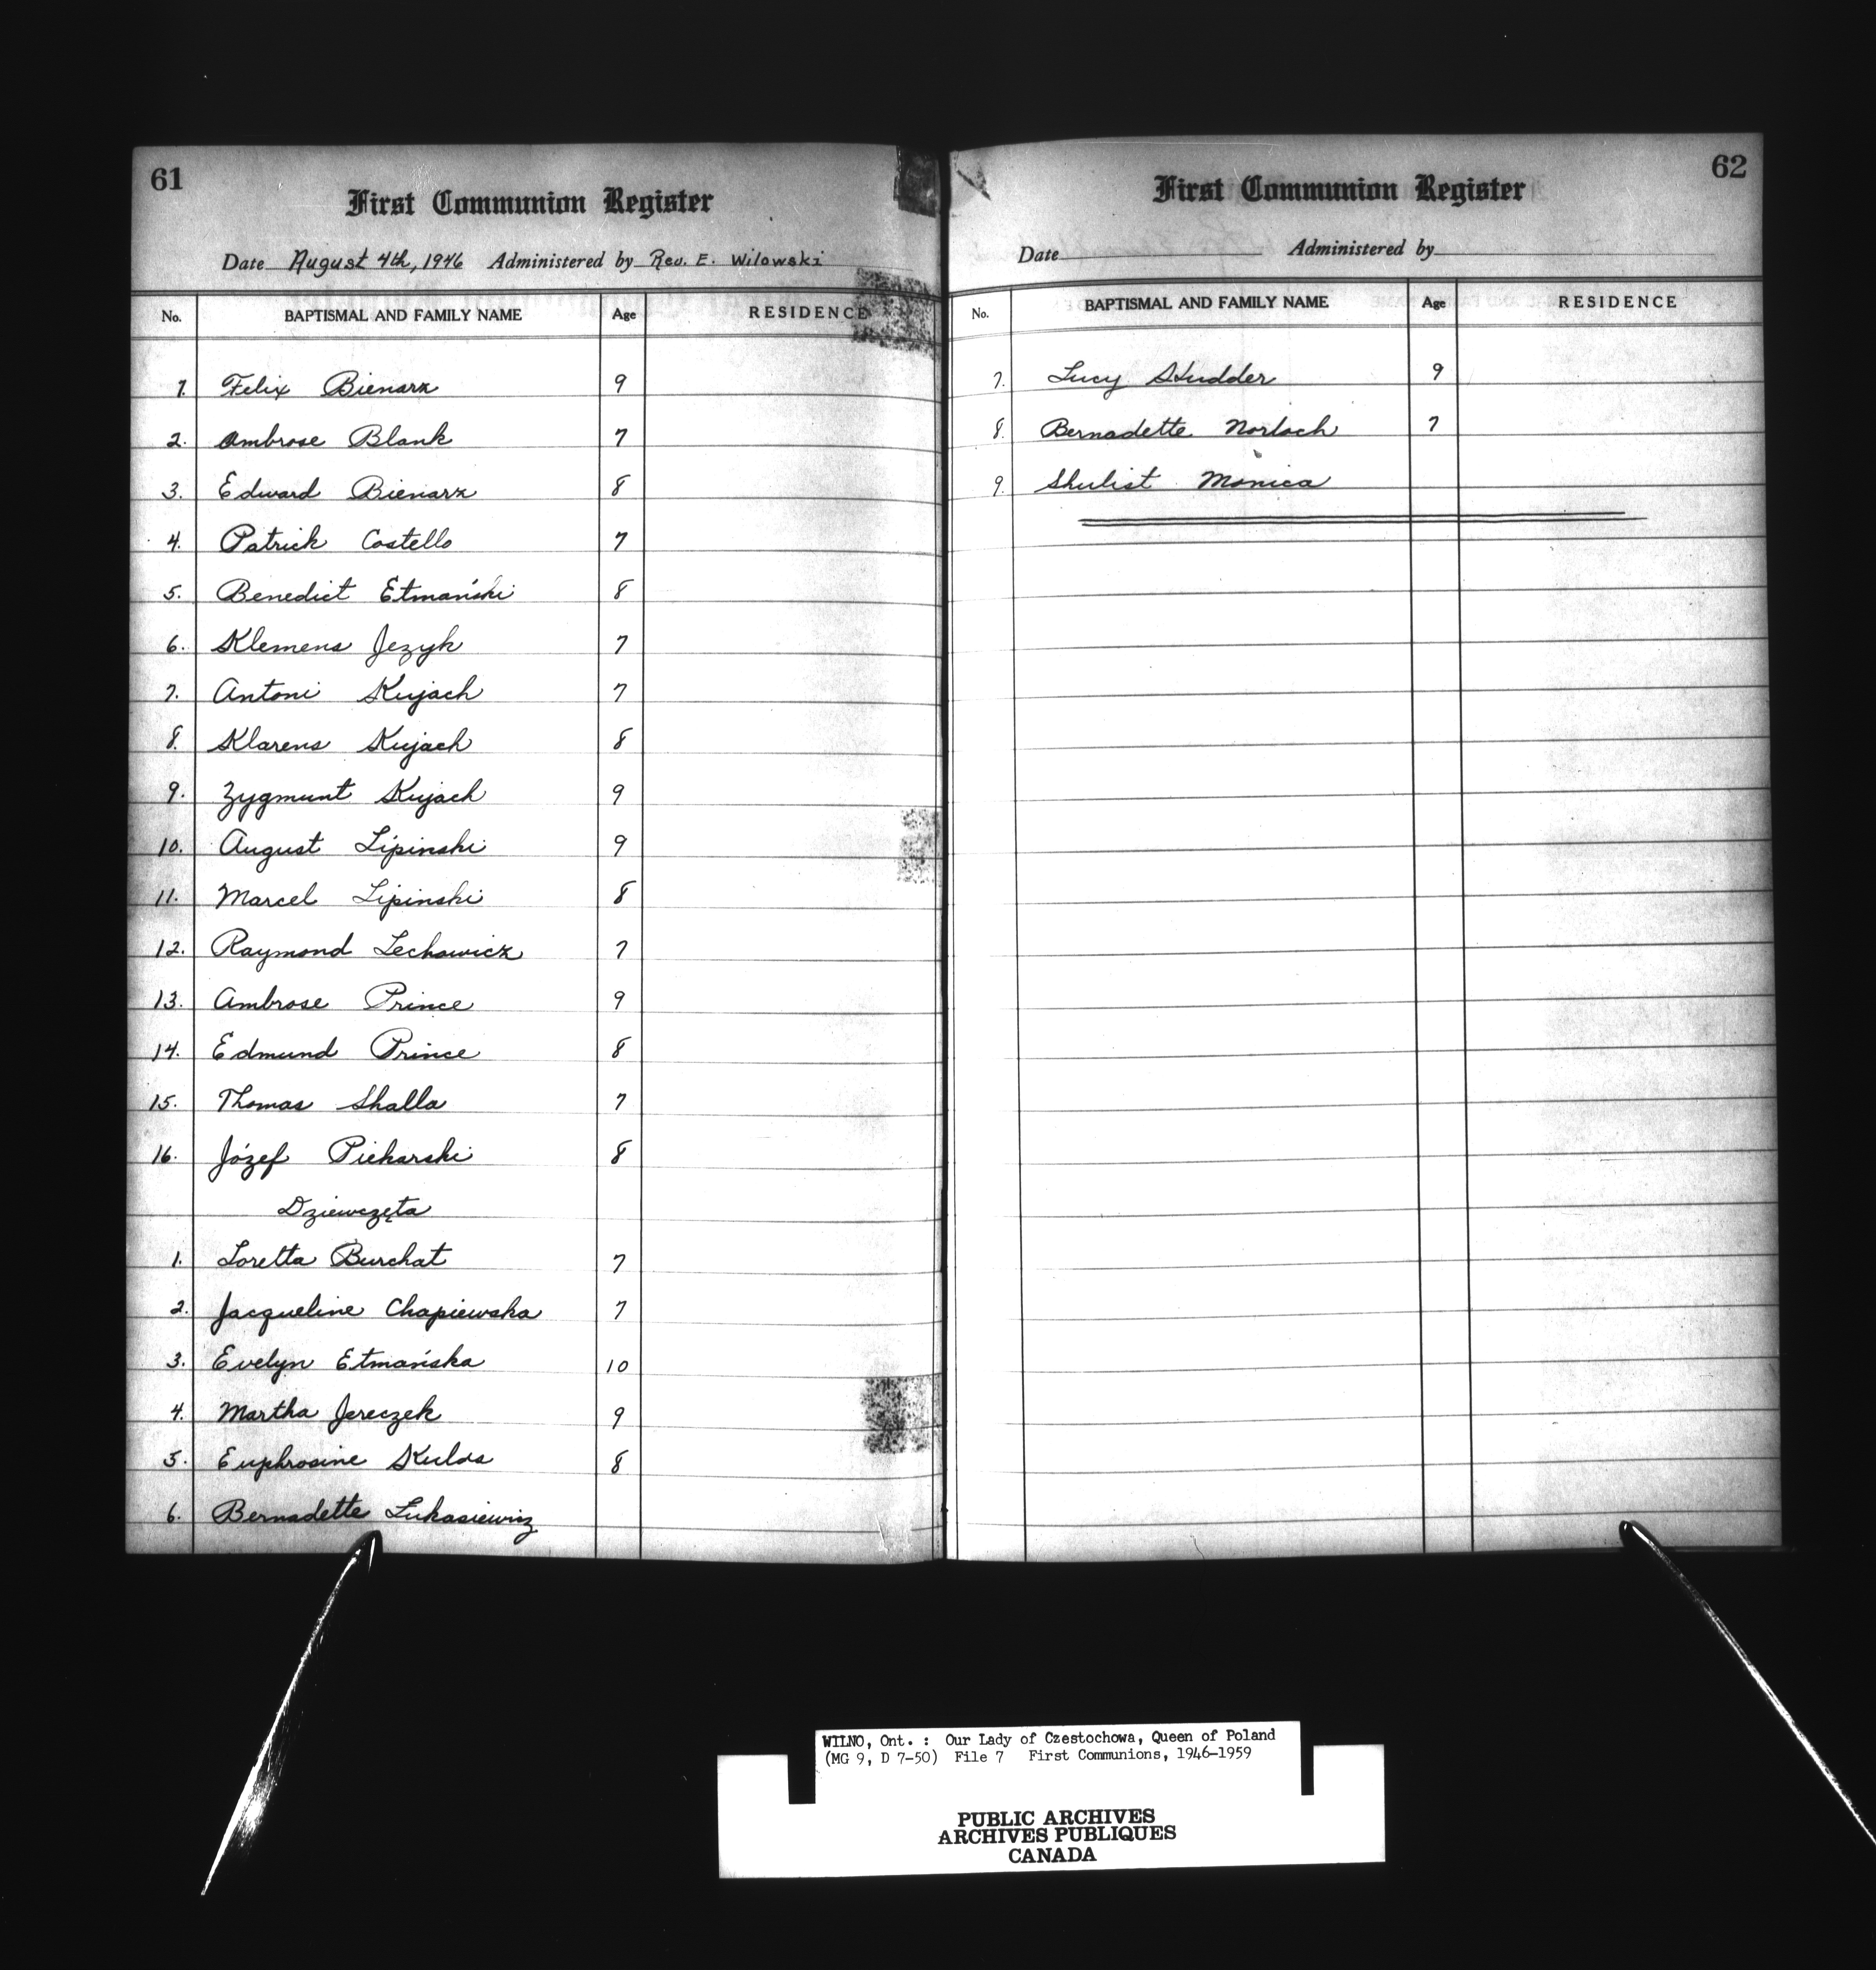 61
First Communion Register
Date August 4th, 1946 Administered by Rev. E. Wilowski
No. BAPTISMAL AND FAMILY NAME Age RESIDENCE
1. Felix Bienarz 9
2. Ambrose Blank 7
3. Edward Bienarz 8
4. Patrick Costello 7
5. Benedict Etmański 8
6. Klemens Jezyk 7
7. Antoni Kujach 7
8. Klarens Kujach 8
9. Zygmunt Kujach 9
10. August Lipinski 9
11. Marcel Lipinski 8
12. Raymond Lechowicz 7
13. Ambrose Prince 9
14. Edmund Prince 8
15. Thomas Shalla 7
16. Józef Piekarski 8
Dziewczęta
1. Loretta Burchat 7
2. Jacqueline Chapiewska 7
3. Evelyn Etmańska 10
4. Martha Jereczek 9
5. Euphrosine Kulas 8
6. Bernadette Lukasiewicz
62
First Communion Register
Date Administered by
No. BAPTISMAL AND FAMILY NAME Age RESIDENCE
7. Lucy Studder 9
8. Bernadette Norlock 7
9. Shulist Monica
WILNO, Ont. : Our Lady of Czestochowa, Queen of Poland
(MG 9, D 7-50) File 7 First Communions, 1946-1959
PUBLIC ARCHIVES
ARCHIVES PUBLIQUES
CANADA